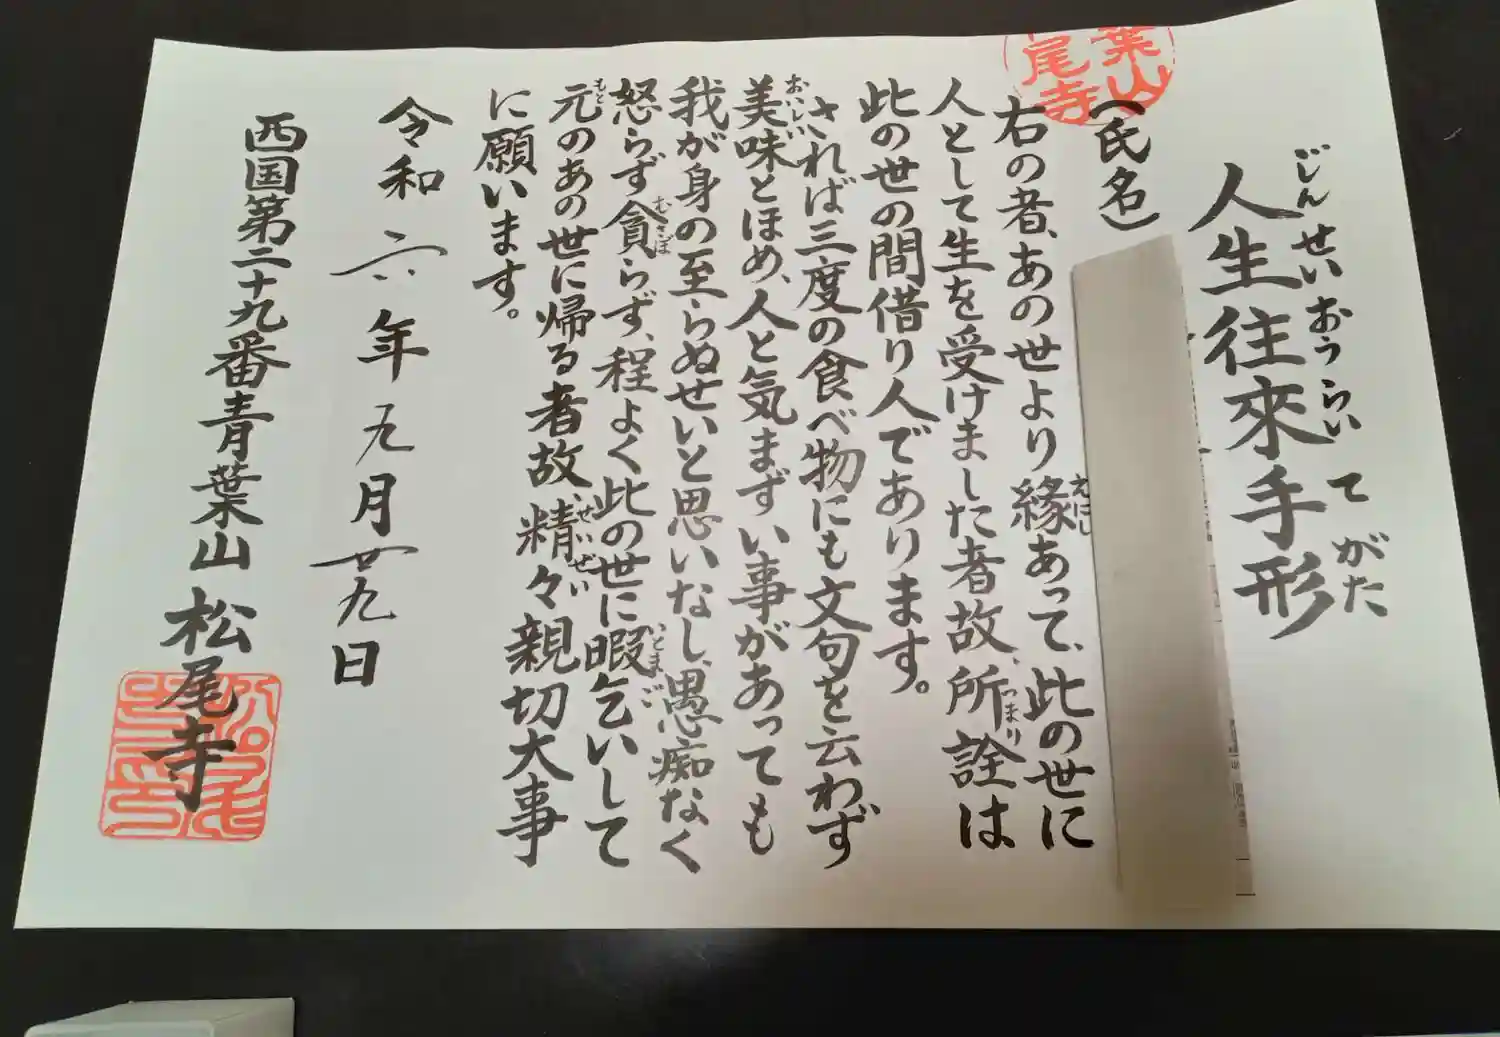 人生往來手形
じんせいおうらいてがた
葉山
尾寺
(氏名)
右の者、あの世より縁あって、此の世に
えにし
人として生を受けました者故、所詮は
つまり
此の世の間借り人であります。
されば三度の食べ物にも文句を云わず
美味とほめ、人と気まずい事があっても
おいしい
我が身の至らぬせいと思いなし、愚痴なく
怒らず貪らず、程よく此の世に暇乞いして
むさぼ
いとまご
元のあの世に帰る者故、精々親切大事
もと
せいぜい
に願います。
令和六年九月廿九日
西国第二十九番青葉山松尾寺